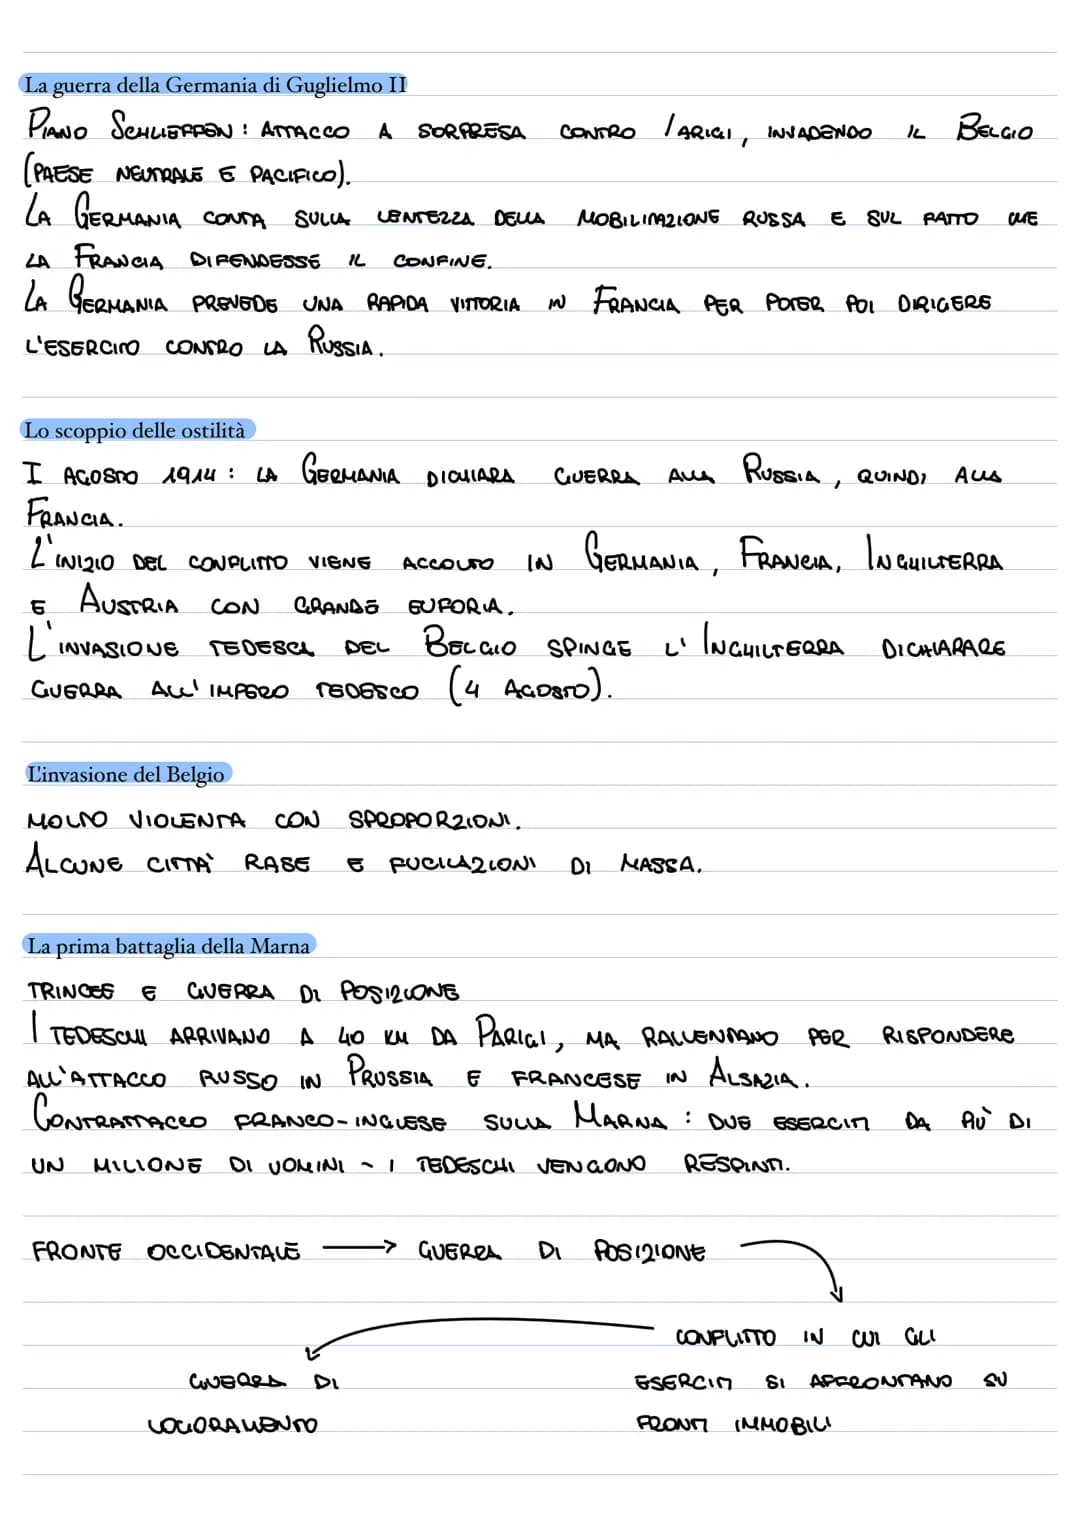 La guerra della Germania di Guglielmo II
PIANO SCHLIEFFEN : ATTACCO A SORPRESA CONTRO PARIGI, INVADENDO IL BELGIO
(PAESE NEUTRALE E PACIFICO).
LA GERMANIA CONTA SULLA LENTEZZA DELLA MOBILITAZIONE RUSSA E SUL FATTO CHE
LA FRANCIA DIFENDESSE IL CONFINE.
LA GERMANIA PREVEDE UNA RAPIDA VITTORIA IN FRANCIA PER POTER POI DIRIGERE
L'ESERCITO CONTRO LA RUSSIA.
Lo scoppio delle ostilità
I AGOSTO 1914 : LA GERMANIA DICHIARA GUERRA ALLA RUSSIA, QUINDI ALLA
FRANCIA.
L'INIZIO DEL CONFLITTO VIENE ACCOLTO IN GERMANIA, FRANCIA, INGHILTERRA
E AUSTRIA CON GRANDE EUFORIA.
L'INVASIONE TEDESCA DEL BELGIO SPINGE L'INGHILTERRA DICHIARARE
GUERRA ALL'IMPERO TEDESCO (4 AGOSTO).
L'invasione del Belgio
MOLTO VIOLENTA CON SPROPORZIONI.
ALCUNE CITTA' RASE E FUCILAZIONI DI MASSA.
La prima battaglia della Marna
TRINCEE E GUERRA DI POSIZIONE
I TEDESCHI ARRIVANO A 40 KM DA PARIGI, MA RALLENTANO PER RISPONDERE
ALL'ATTACCO RUSSO IN PRUSSIA E FRANCESE IN ALSAZIA.
CONTRATTACCO FRANCO-INGLESE SULLA MARNA : DUE ESERCITI DA PIÙ DI
UN MILIONE DI UOMINI - I TEDESCHI VENGONO RESPINTI.
FRONTE OCCIDENTALE → GUERRA DI POSIZIONE
CONFLITTO IN CUI GLI
GUERRA DI ESERCITI SI AFFRONTANO SU
LOGORAMENTO FRONTI IMMOBILI